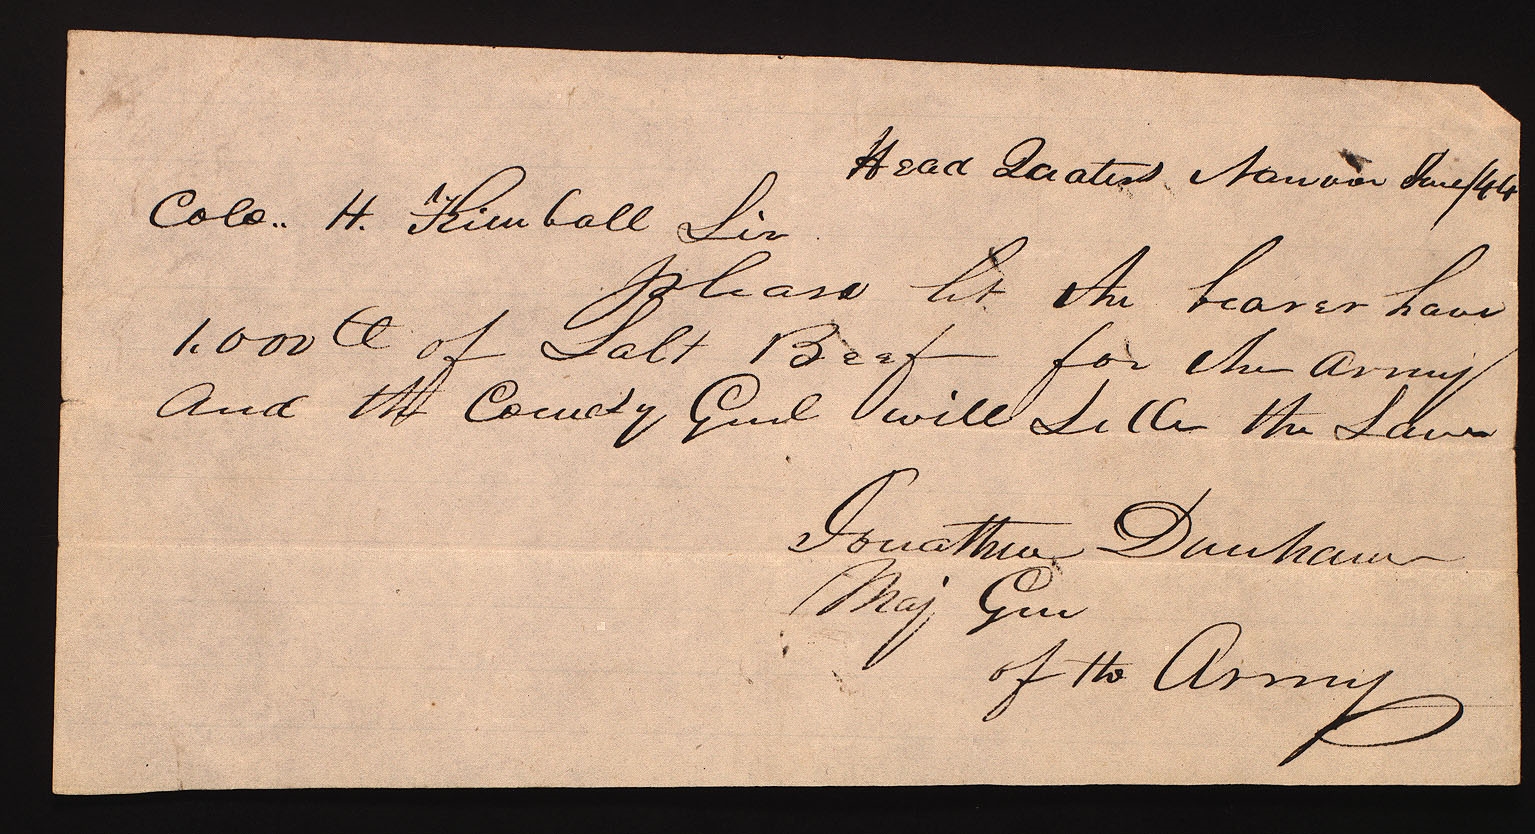 Head Quaters Nauvoo June/44
Colo.. H. Kimball Sir
please let the bearer have
1.000 lb of Salt Beef for the army
And the Comsy Genl will Settle the Same
Jonathan Dunham
Maj Gen
of the Army